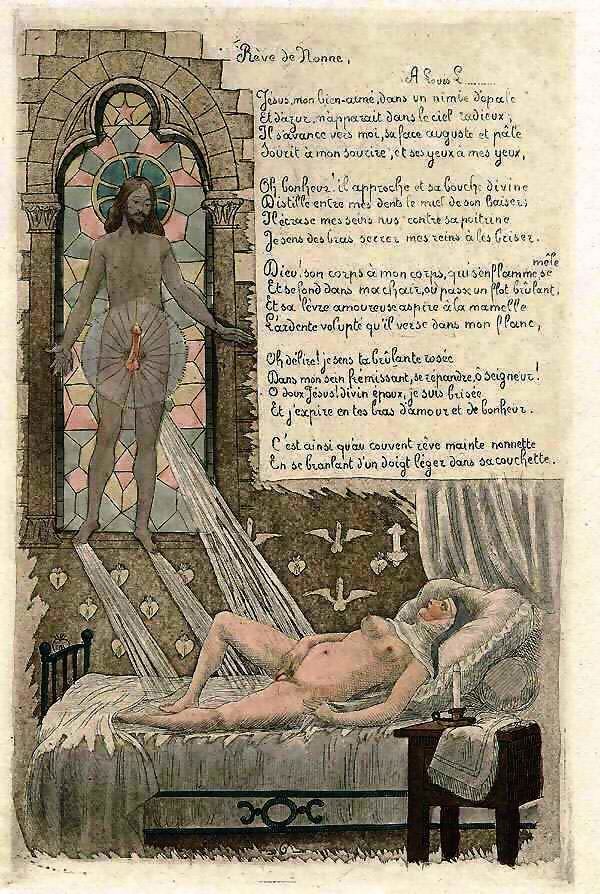 Rêve de Nonne,
A Louis L.........
Jésus, mon bien-aimé, dans un nimbe d'opale
Et d'azur, m'apparait dans le ciel radieux;
Il s'avance vers moi, sa face auguste et pâle
Sourit à mon sourire, et ses yeux à mes yeux,
Oh bonheur! il approche et sa bouche divine
Distille entre mes dents le miel de son baiser;
Il écrase mes seins nus contre sa poitrine
Je sens des bras serrer mes reins à les briser.
Dieu! son corps à mon corps, qui s'enflamme, se mêle
Et se fond dans ma chair, où passe un flot brûlant,
Et sa lèvre amoureuse aspire à la mamelle
L'ardente volupté qu'il verse dans mon flanc,
Oh délire! je sens ta brûlante rosée
Dans mon sein frémissant, se répandre, ô seigneur!
O doux Jésus! divin époux, je suis brisée
Et j'expire en tes bras d'amour et de bonheur.
C'est ainsi qu'au couvent rêve mainte nonnette
En se branlant d'un doigt léger dans sa couchette.